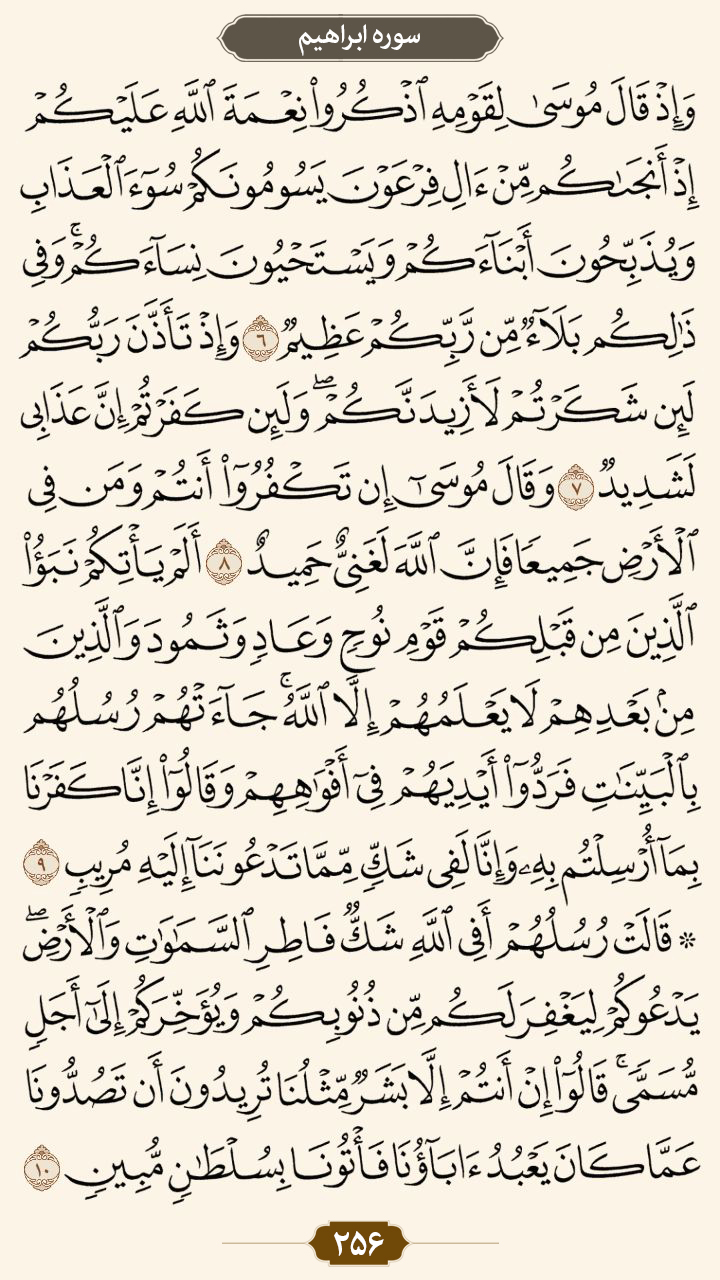 سوره ابراهیم
وَإِذۡ قَالَ مُوسَىٰ لِقَوۡمِهِ ٱذۡكُرُواْ نِعۡمَةَ ٱللَّهِ عَلَيۡكُمۡ
إِذۡ أَنجَىٰكُم مِّنۡ ءَالِ فِرۡعَوۡنَ يَسُومُونَكُمۡ سُوٓءَ ٱلۡعَذَابِ
وَيُذَبِّحُونَ أَبۡنَآءَكُمۡ وَيَسۡتَحۡيُونَ نِسَآءَكُمۡۚ وَفِي
ذَٰلِكُم بَلَآءٞ مِّن رَّبِّكُمۡ عَظِيمٞ ٦ وَإِذۡ تَأَذَّنَ رَبُّكُمۡ
لَئِن شَكَرۡتُمۡ لَأَزِيدَنَّكُمۡۖ وَلَئِن كَفَرۡتُمۡ إِنَّ عَذَابِي
لَشَدِيدٞ ٧ وَقَالَ مُوسَىٰٓ إِن تَكۡفُرُوٓاْ أَنتُمۡ وَمَن فِي
ٱلۡأَرۡضِ جَمِيعٗا فَإِنَّ ٱللَّهَ لَغَنِيٌّ حَمِيدٌ ٨ أَلَمۡ يَأۡتِكُمۡ نَبَؤُاْ
ٱلَّذِينَ مِن قَبۡلِكُمۡ قَوۡمِ نُوحٖ وَعَادٖ وَثَمُودَ وَٱلَّذِينَ
مِنۢ بَعۡدِهِمۡ لَا يَعۡلَمُهُمۡ إِلَّا ٱللَّهُۚ جَآءَتۡهُمۡ رُسُلُهُم
بِٱلۡبَيِّنَٰتِ فَرَدُّوٓاْ أَيۡدِيَهُمۡ فِيٓ أَفۡوَٰهِهِمۡ وَقَالُوٓاْ إِنَّا كَفَرۡنَا
بِمَآ أُرۡسِلۡتُم بِهِۦ وَإِنَّا لَفِي شَكّٖ مِّمَّا تَدۡعُونَنَآ إِلَيۡهِ مُرِيبٖ ٩
۞ قَالَتۡ رُسُلُهُمۡ أَفِي ٱللَّهِ شَكّٞ فَاطِرِ ٱلسَّمَٰوَٰتِ وَٱلۡأَرۡضِۖ
يَدۡعُوكُمۡ لِيَغۡفِرَ لَكُم مِّن ذُنُوبِكُمۡ وَيُؤَخِّرَكُمۡ إِلَىٰٓ أَجَلٖ
مُّسَمّٗىۚ قَالُوٓاْ إِنۡ أَنتُمۡ إِلَّا بَشَرٞ مِّثۡلُنَا تُرِيدُونَ أَن تَصُدُّونَا
عَمَّا كَانَ يَعۡبُدُ ءَابَآؤُنَا فَأۡتُونَا بِسُلۡطَٰنٖ مُّبِينٖ ١٠
۲۵۶